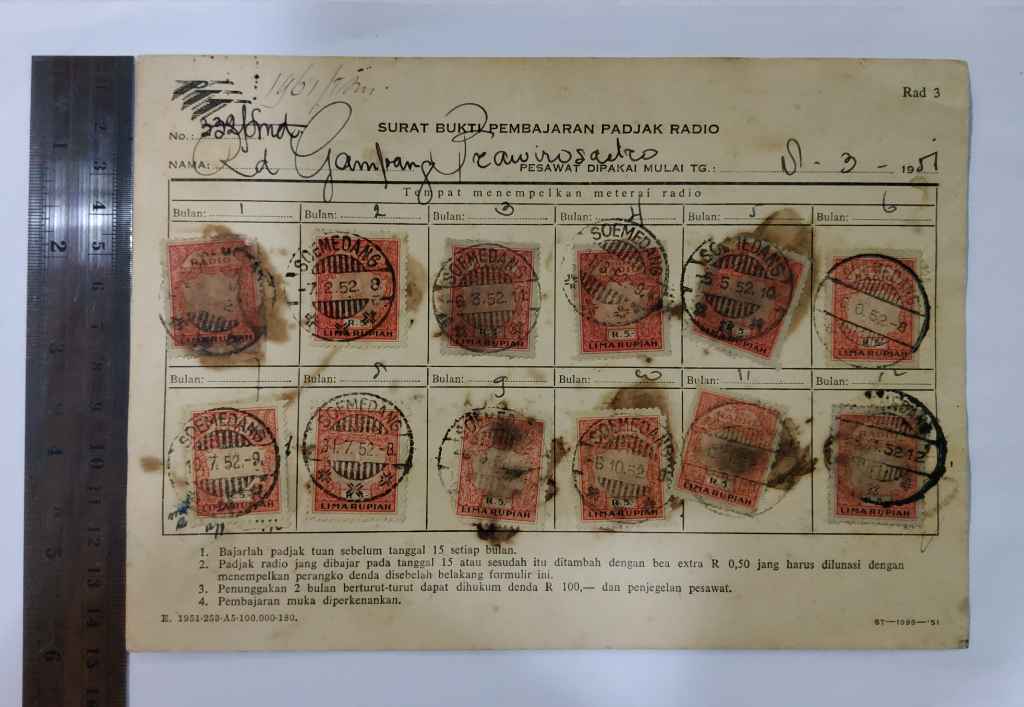 Rad 3
No.: 332/Smd
SURAT BUKTI PEMBAJARAN PADJAK RADIO
NAMA: Rd Gampang Prawirosastro PESAWAT DIPAKAI MULAI TG.: 8 - 3 - 1951
Tempat menempelkan meterai radio
Bulan: 1 Bulan: 2 Bulan: 3 Bulan: 4 Bulan: 5 Bulan: 6
SOEMEDANG SOEMEDANG SOEMEDANG SOEMEDANG SOEMEDANG
-7.2.52.-8 6.3.52.11 5.52.10 6.52.-8
R. 5.- R. 5.- R. 5.-
LIMA RUPIAH LIMA RUPIAH LIMA RUPIAH LIMA RUPIAH LIMA RUPIAH LIMA RUPIAH
Bulan: Bulan: 8 Bulan: 9 Bulan: 10 Bulan: 11 Bulan: 12
SOEMEDANG SOEMEDANG SOEMEDANG SOEMEDANG
7.52.-9 7.52.-8 6.10.52 52.12
R. 5.- R. 5.- R. 5.- R. 5.- R. 5.-
LIMA RUPIAH LIMA RUPIAH LIMA RUPIAH LIMA RUPIAH LIMA RUPIAH LIMA RUPIAH
1. Bajarlah padjak tuan sebelum tanggal 15 setiap bulan.
2. Padjak radio jang dibajar pada tanggal 15 atau sesudah itu ditambah dengan bea extra R 0,50 jang harus dilunasi dengan
menempelkan perangko denda disebelah belakang formulir ini.
3. Penunggakan 2 bulan berturut-turut dapat dihukum denda R 100,— dan penjegelan pesawat.
4. Pembajaran muka diperkenankan.
E. 1951-253-A5-100.000-180.
ST—1095—'51